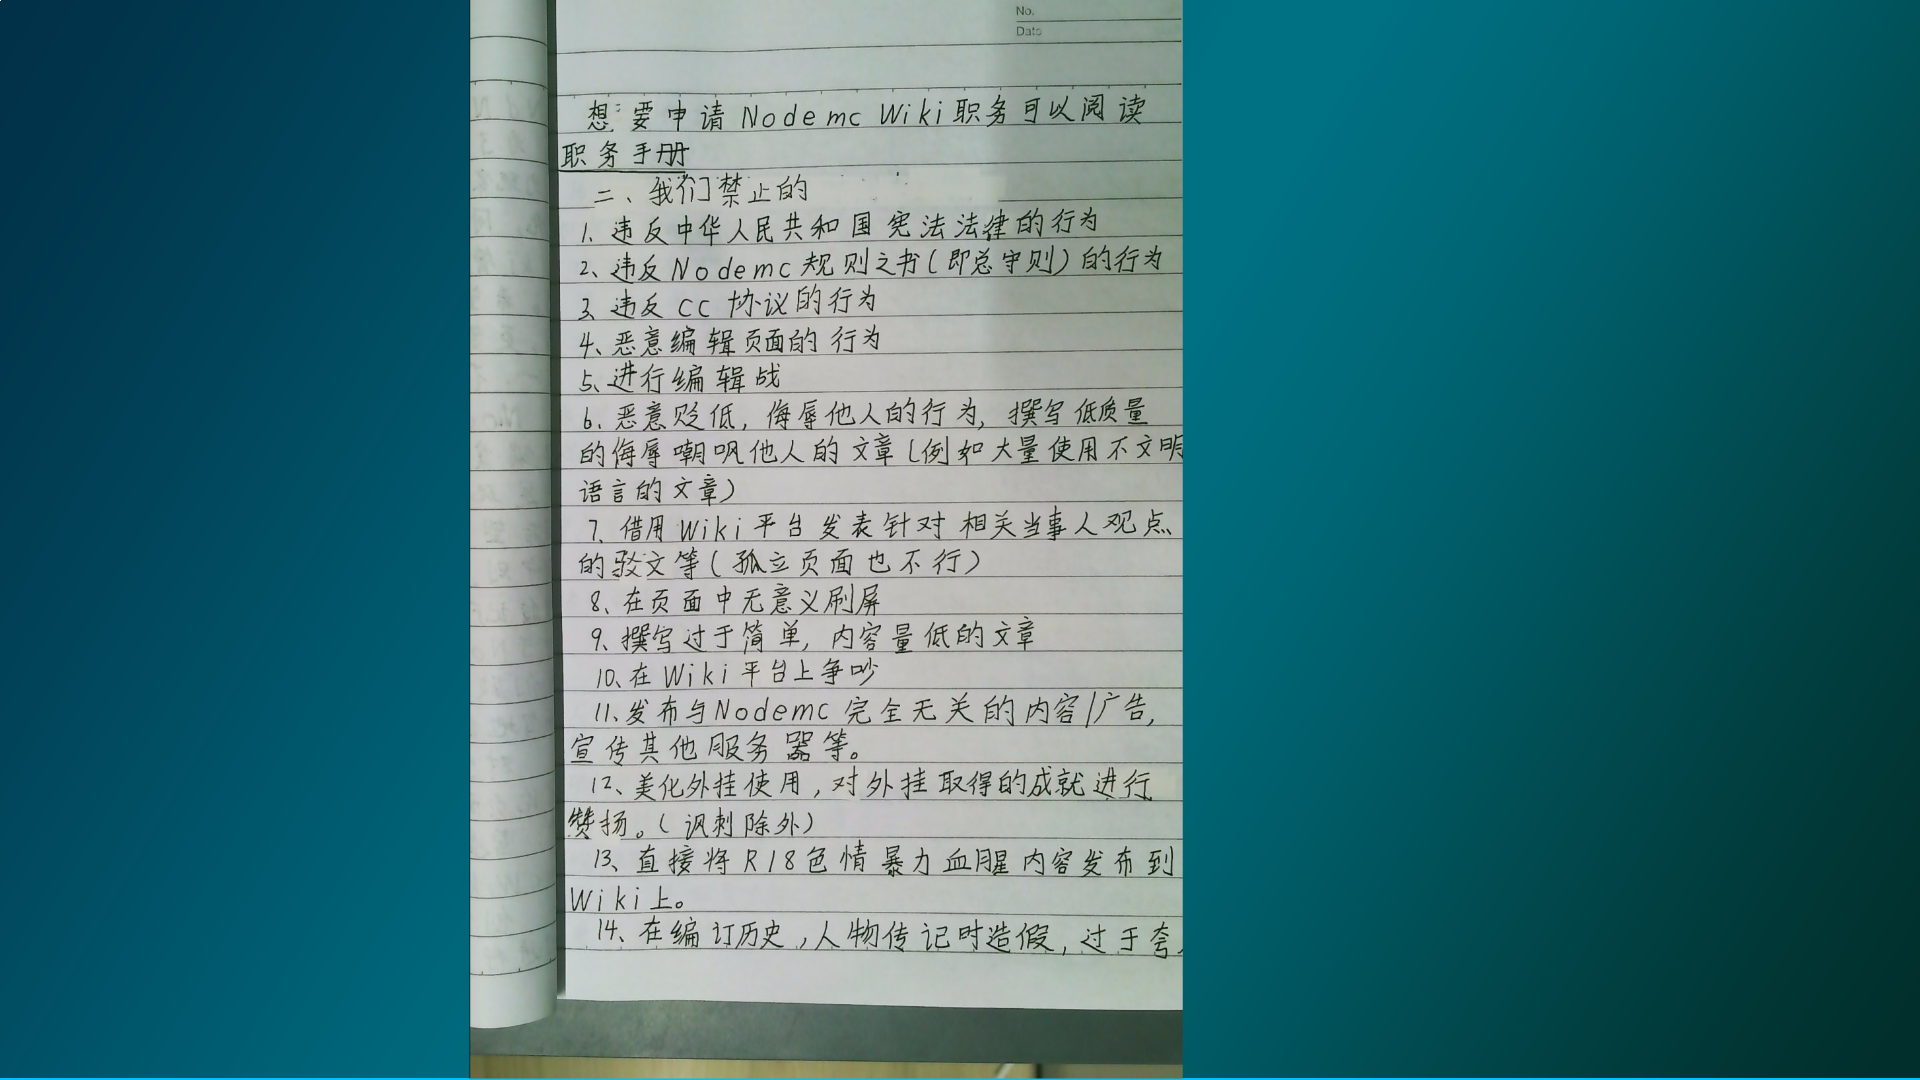 No.
Date
想要申请Nodemc Wiki职务可以阅读
职务手册
二、我们禁止的
1、违反中华人民共和国宪法法律的行为
2、违反Nodemc规则之书(即总守则)的行为
3、违反CC协议的行为
4、恶意编辑页面的行为
5、进行编辑战
6、恶意贬低,侮辱他人的行为,撰写低质量
的侮辱嘲讽他人的文章(例如大量使用不文明
语言的文章)
7、借用Wiki平台发表针对相关当事人观点
的驳文等(孤立页面也不行)
8、在页面中无意义刷屏
9、撰写过于简单,内容量低的文章
10、在Wiki平台上争吵
11、发布与Nodemc完全无关的内容/广告,
宣传其他服务器等。
12、美化外挂使用,对外挂取得的成就进行
赞扬。(讽刺除外)
13、直接将R18色情暴力血腥内容发布到
Wiki上。
14、在编订历史,人物传记时造假,过于夸